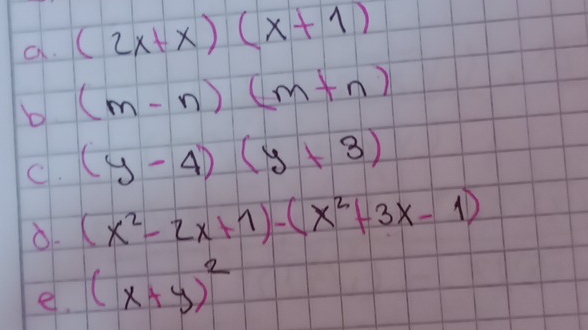 a. (2x+x) (x+1)
b. (m-n) (m+n)
c. (y-4) (y+3)
d- (x²-2x+1)-(x²+3x-1)
e. (x+y)²